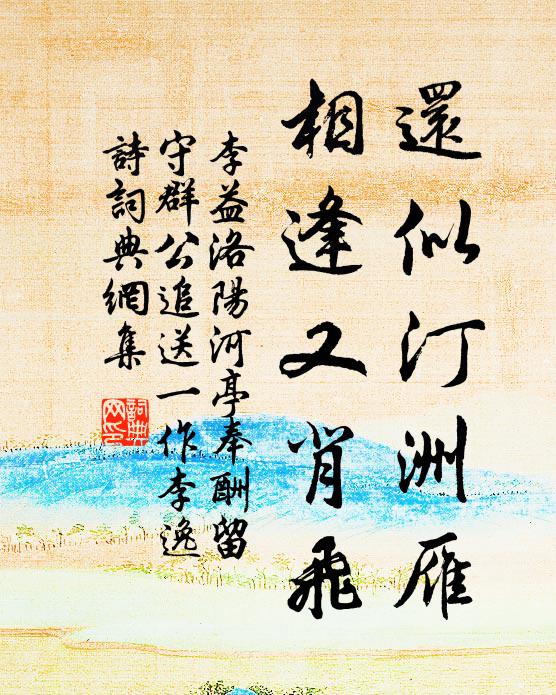 還似汀洲雁
相逢又背飛
李益洛陽河亭奉酬留
守群公追送一作李逸
詩詞典網集
詞典
网印